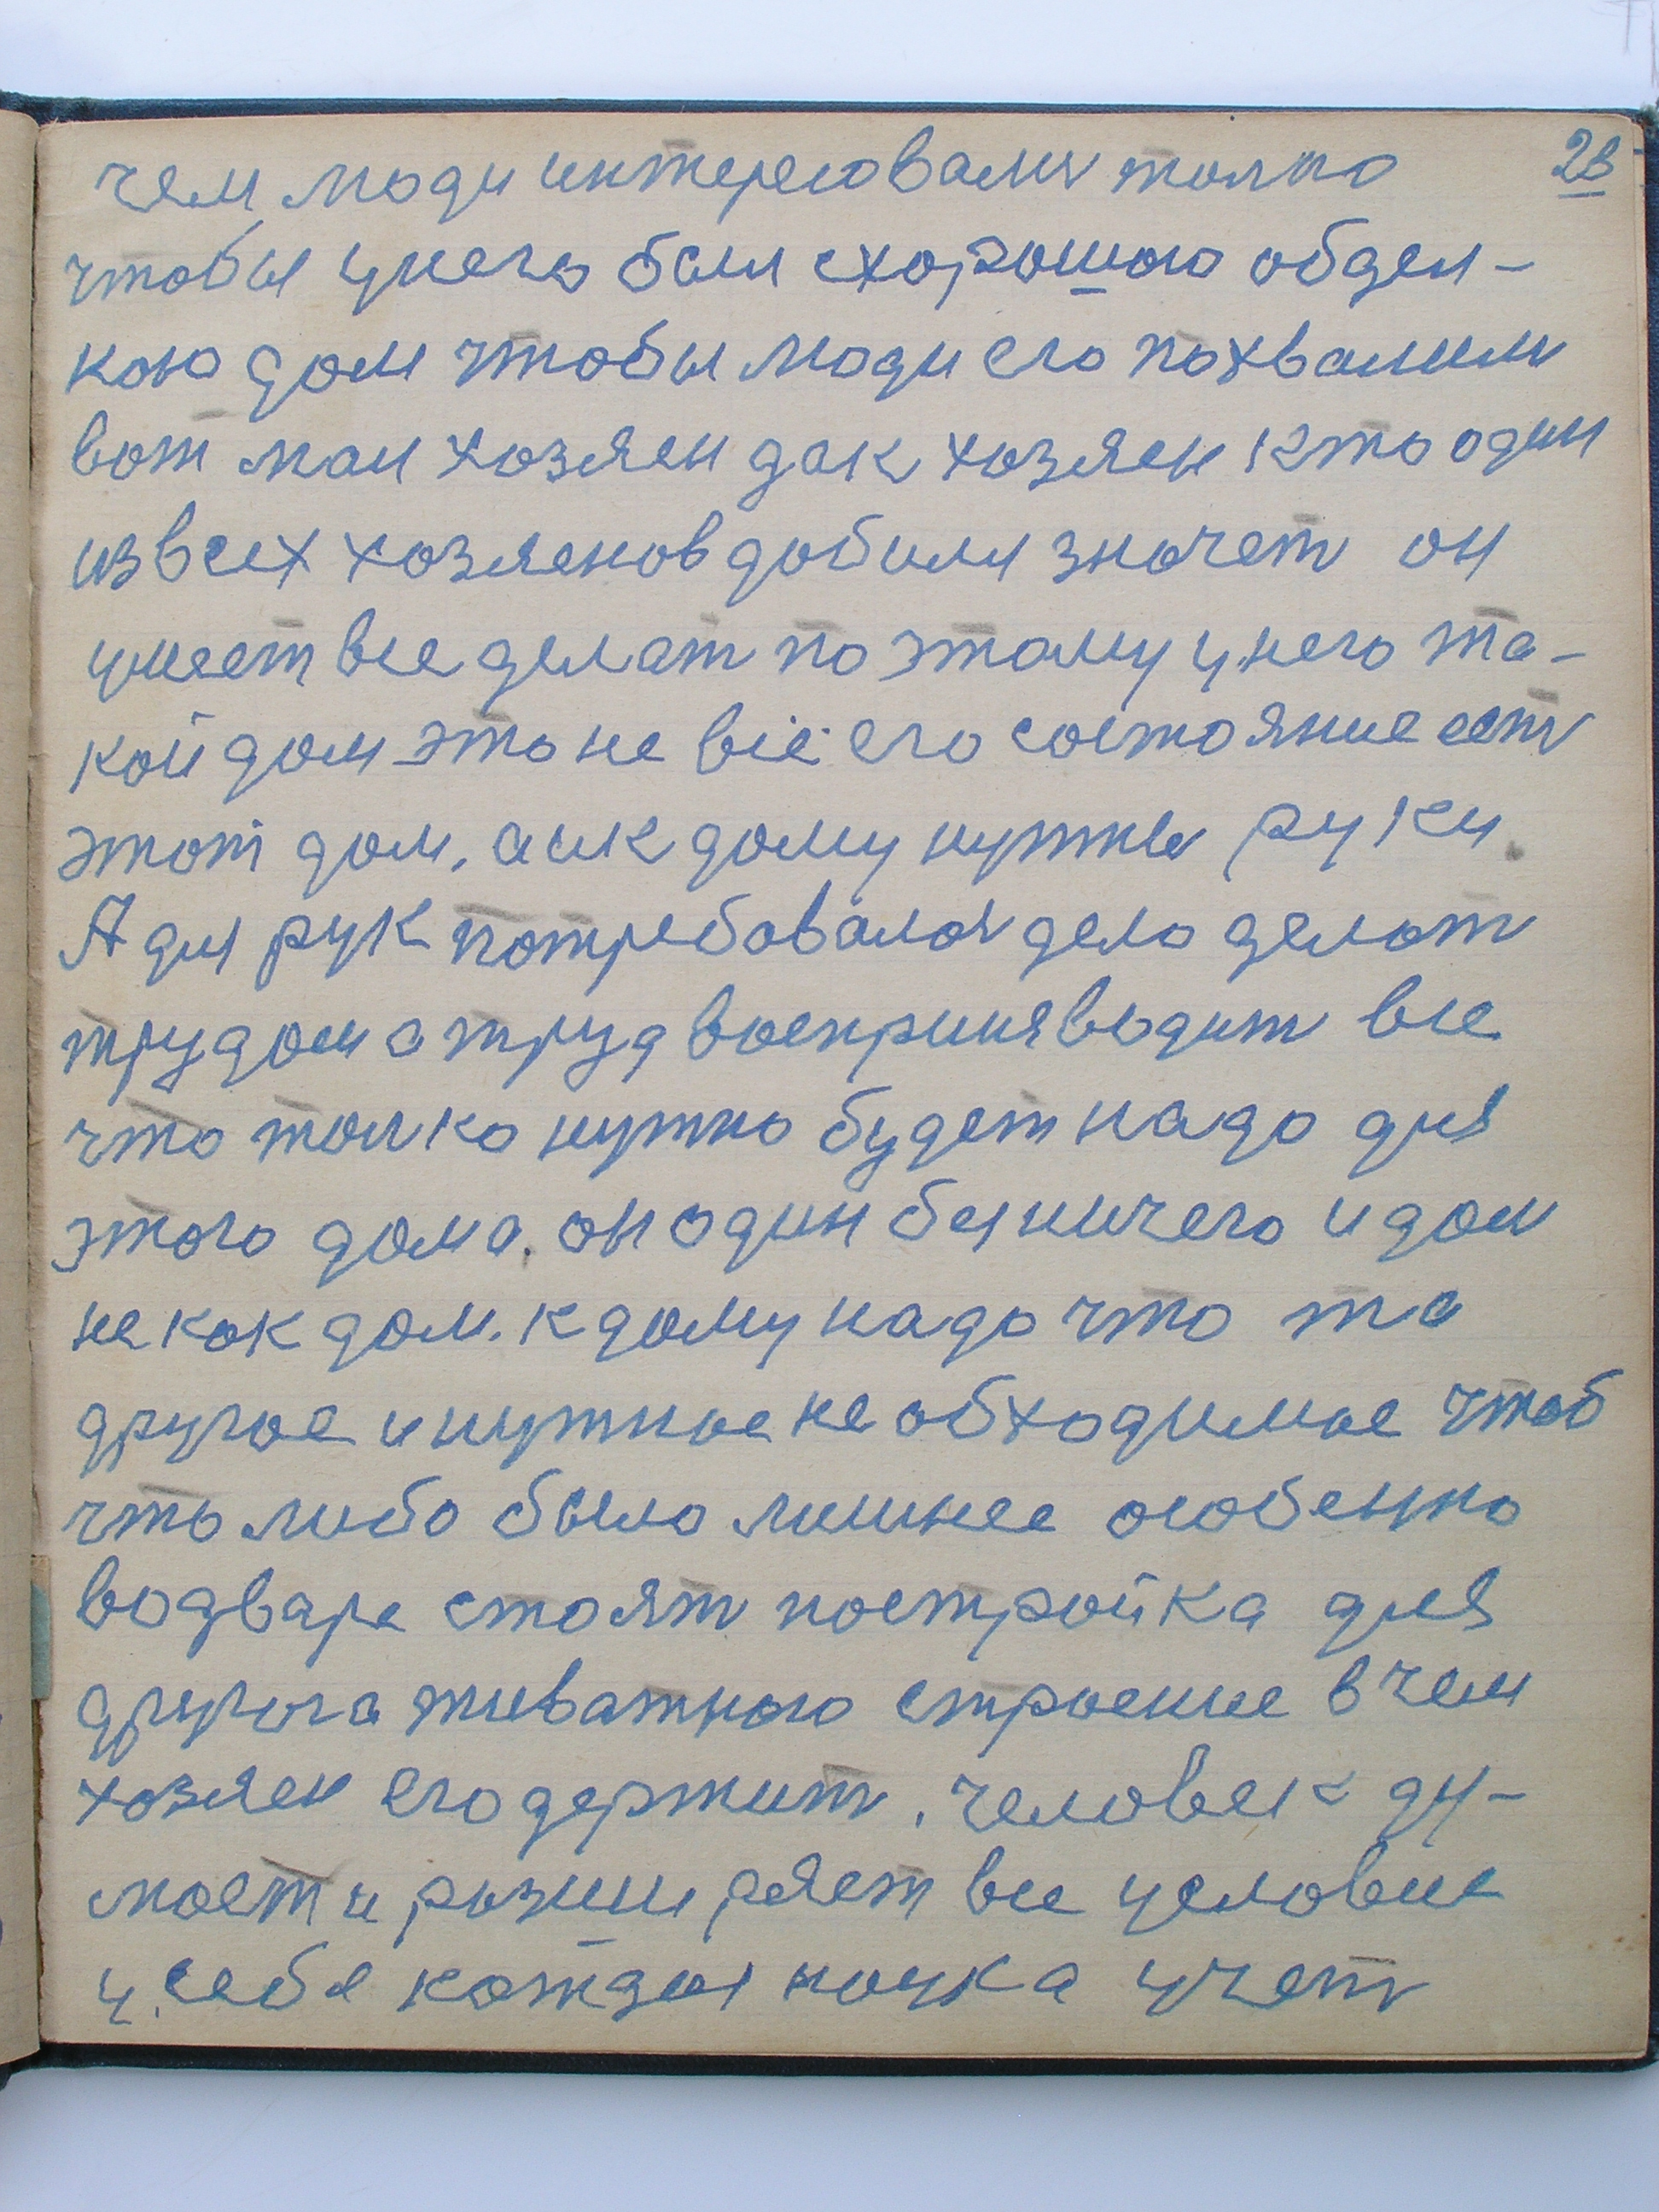 28
чем люди интересовались толко
чтобы у него был с хорошою обдел-
кою дом чтобы люди его похвалили
вот мол хозяен дак хозяен кто один
из всех хозяенов добился значет он
умеет все делат поэтому у него та-
кой дом это не все его состояние ест
этот дом. а и к дому нужны руки.
А для рук потребовалось дело делат
трудом а труд воспринявводит все
что толко нужно будет надо для
этого дома. он один бы ничего и дом
не как дом. к дому надо что та
другое и нужное не обходимое чтоб
что либо было лишнее особенно
водваре стоят постройка для
другога животного строение в чем
хозяен его держит. человек ду-
мает и розширяет все условие
у себя